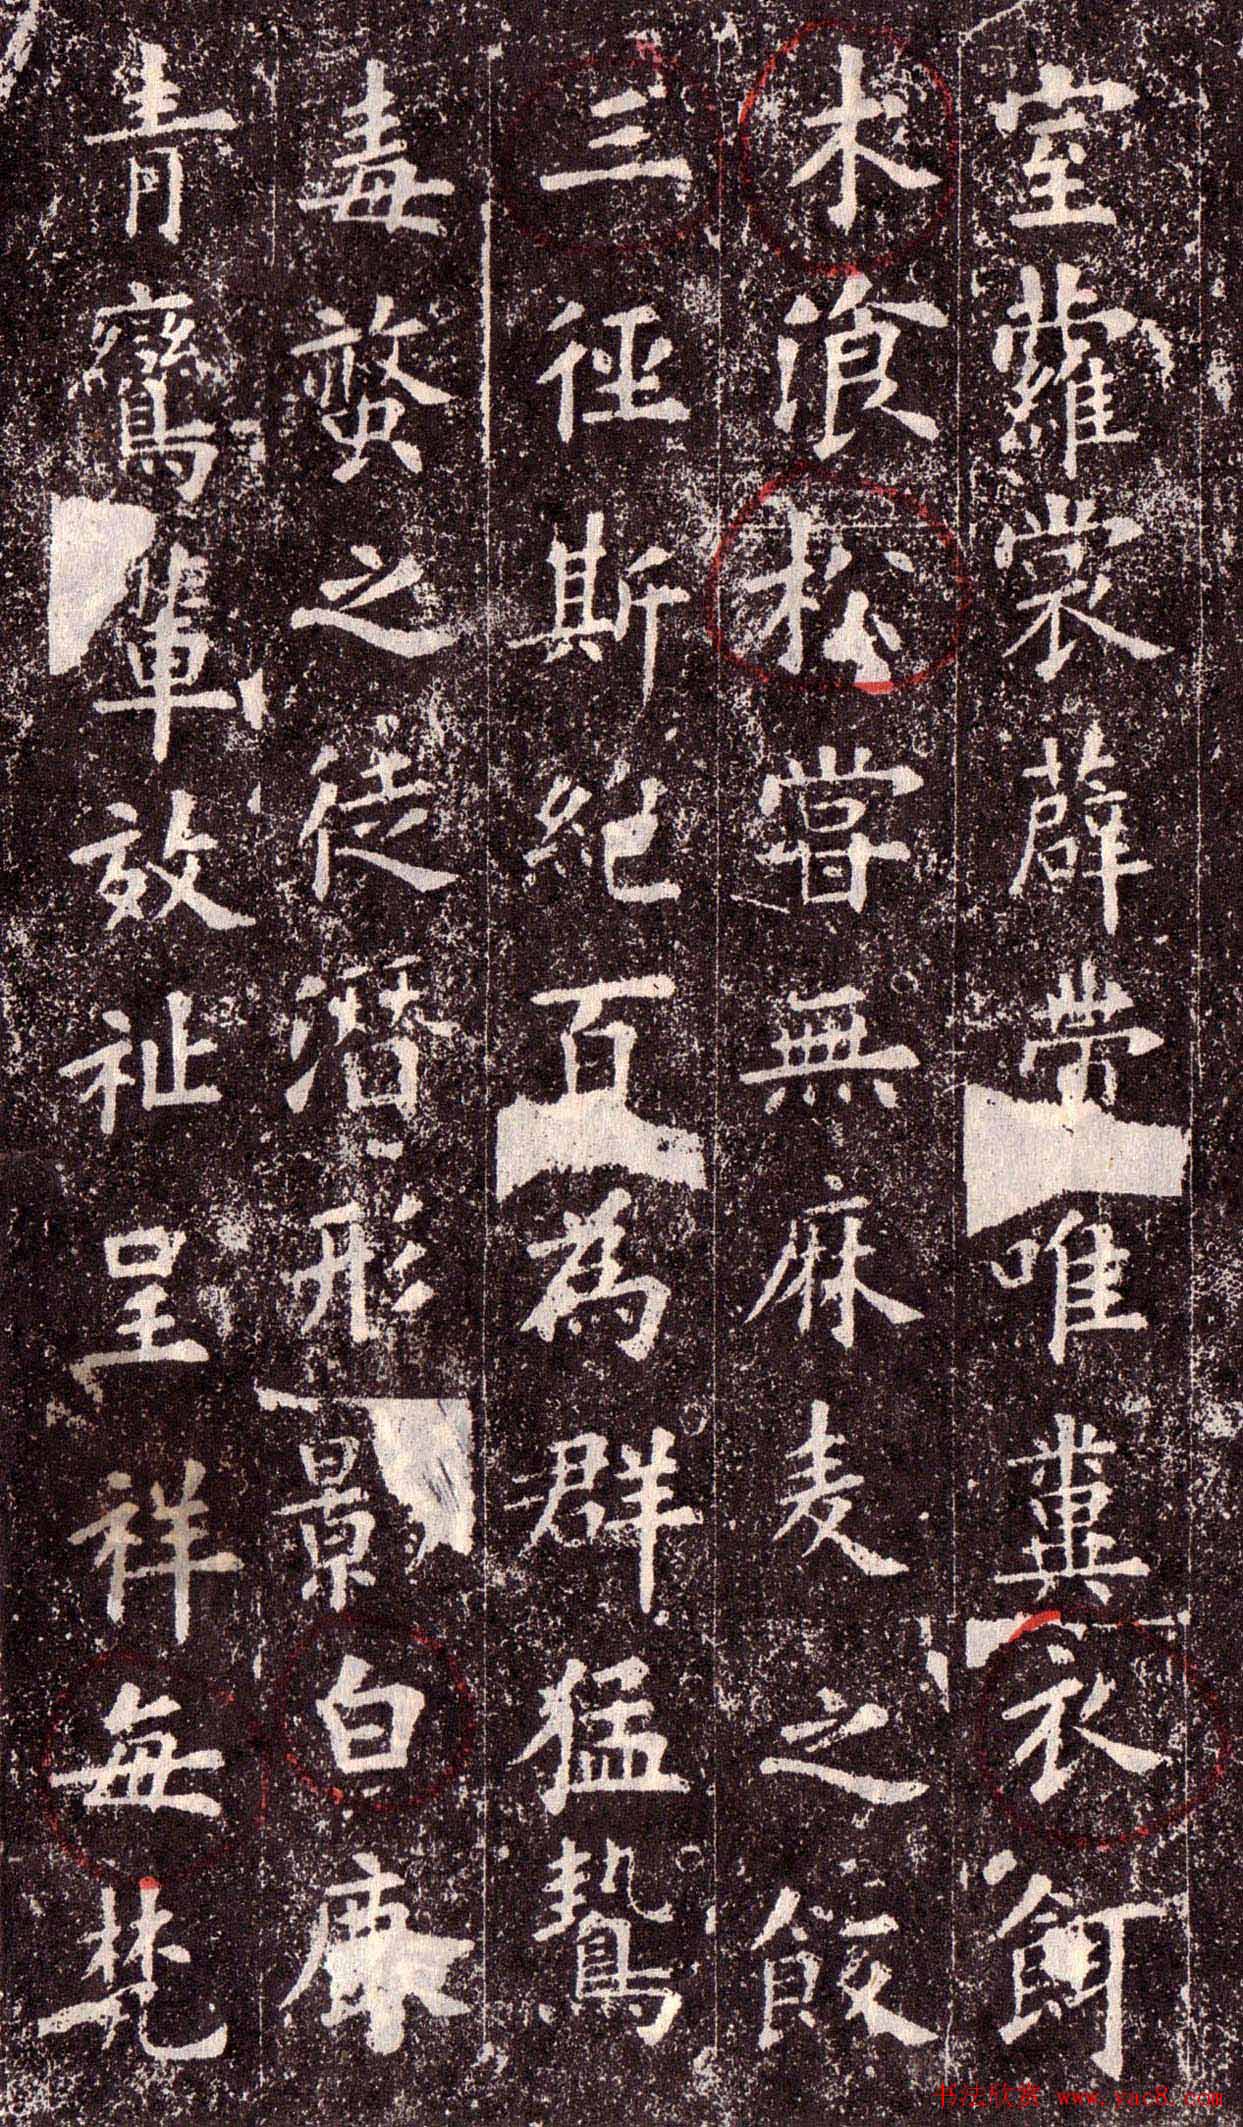 室蘿裳薜帶唯糞衣餌
术飡松嘗無麻麦之飯
三徑斯紀百為群猛鷙
毒螫之徒潛形景白鹿
青鸞輩效祉呈祥每梵
书法欣赏 www.yac8.com